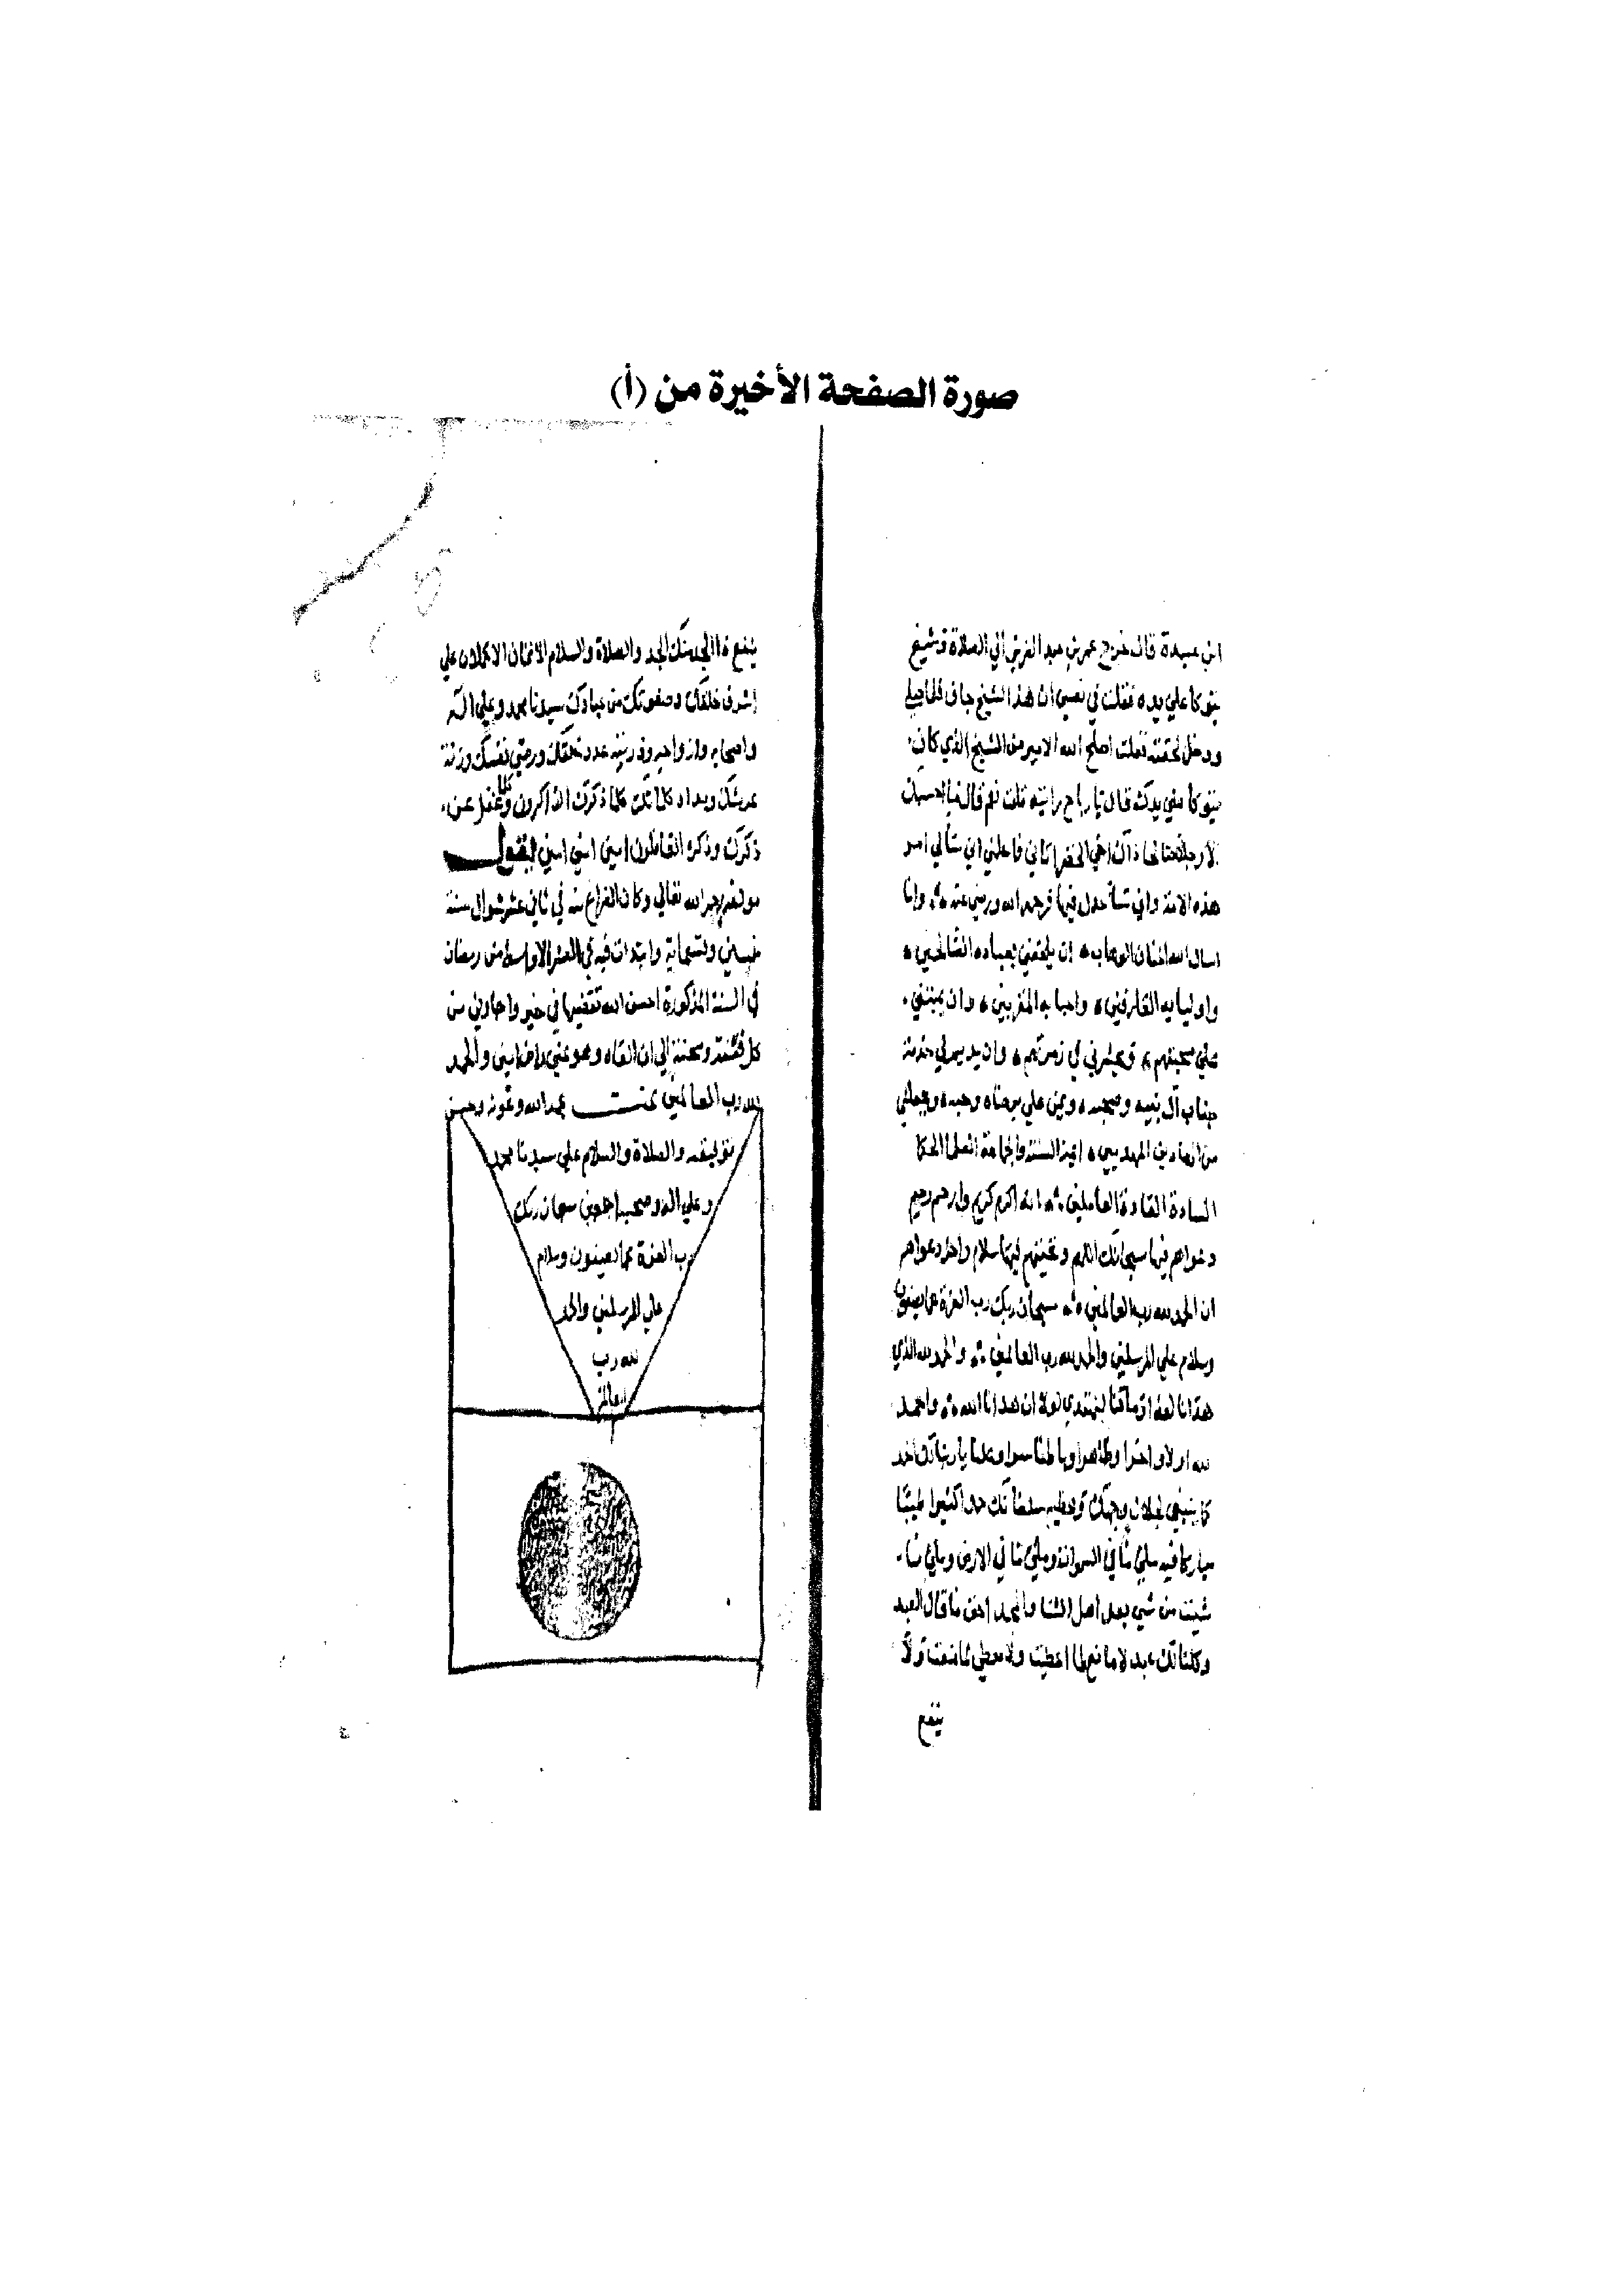 صورة الصفحة الأخيرة من (أ)
ابن عبيدة قال خرج عمر بن عبد العزيز الي الصلاة وشيخ
يتوكا علي يده فقلت في نفسي ان هذا الشيخ جاف فلما صلي
ودخل لحقته فقلت اصلح الله الامير من الشيخ الذي كان
يتوكا علي يدك قال يا رباح رايته قلت نعم قال ما احسبك
الا رجلا صالحا ذاك اخي الخضر اتاني فاعلمني اني سالي امر
هذه الامة واني ساعدل فيها فرحمه الله ورضي عنه وانا
اسال الله المنان الوهاب ان يلحقني بعباده الصالحين
واوليايه العارفين واحبابه المقربين وان يميتني
علي محبتهم ويحشرني في زمرتهم وان يديم لي خدمة
جناب آل نبيه وصحبه ويمن علي برضاه وحبه ويجعلني
من الهادين المهديين ايمة السنة والجماعة العلما الحكما
السادة القادة العاملين انه اكرم كريم وارحم رحيم
دعواهم فيها سبحانك اللهم وتحيتهم فيها سلام واخر دعواهم
ان الحمد لله رب العالمين سبحان ربك رب العزة عما يصفون
وسلام علي المرسلين والحمد لله رب العالمين والحمد لله الذي
هدانا لهذا وما كنا لنهتدي لولا ان هدانا الله والحمد
لله اولا واخرا وظاهرا وباطنا سرا وعلنا يا ربنا لك الحمد
كما ينبغي لجلال وجهك وعظيم سلطانك حمدا كثيرا طيبا
مباركا فيه ملي ما في السموات وملي ما في الارض وملي ما
شيت من شي بعد اهل الثنا والمجد احق ما قال العبد
وكلنا لك عبد لا مانع لما اعطيت ولا معطي لما منعت ولا
ينفع
ينفع ذا الجد منك الجد والصلاة والسلام الاتمان الاكملان علي
اشرف خلقك وصفوتك من عبادك سيدنا محمد وعلي اله
واصحابه وازواجه وذريته عدد خلقك ورضي نفسك وزنة
عرشك ومداد كلماتك كلما ذكرك الذاكرون وكلما غفل عن
ذكرك وذكره الغافلون امين امين امين يقول
مولفه رحمه الله تعالي وكان الفراغ منه في ثاني عشر شوال سنة
خمسين وتسعماية وابتدات فيه في العشر الاواسط من رمضان
في السنة المذكورة احسن الله تقضيها في خير واجارني من
كل فتنة ومحنة الي ان القاه وهو عني راض امين والحمد
لله رب العالمين تمت بحمد الله وعونه وحسن
توفيقه والصلاة والسلام علي سيدنا محمد
وعلي اله وصحبه اجمعين سبحان ربك
رب العزة عما يصفون وسلام
علي المرسلين والحمد
لله رب
العالمين